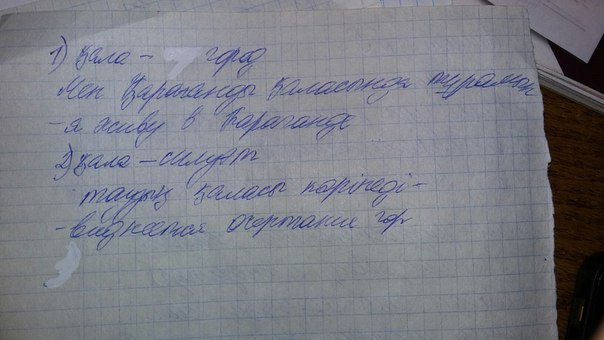 1) қала - город
Мен Қарағанды қаласында тұрамын
- я живу в Караганде
2) қала - силуэт
таудың қаласы көрінеді -
- виднеется очертание гор